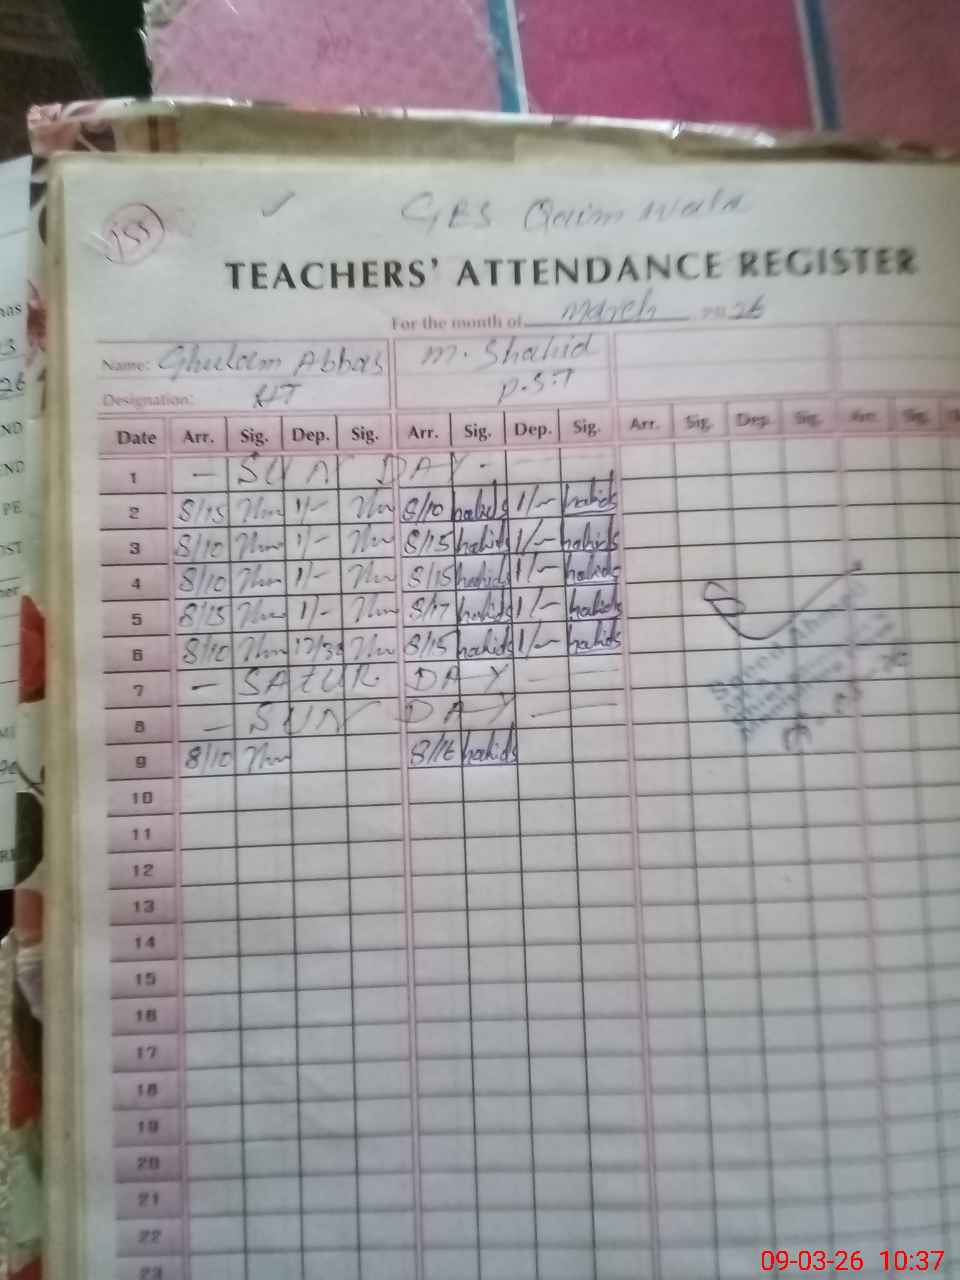 155
GES Qaim Wala
TEACHERS' ATTENDANCE REGISTER
For the month of March 2026
Name: Ghulam Abbas M. Shahid
Designation: HT P.S.T
Date Arr. Sig. Dep. Sig. Arr. Sig. Dep. Sig. Arr. Sig. Dep. Sig. Arr. Sig.
1 — SUN DAY - — —
2 8/15 1/- 8/10 hahids 1/- hahids
3 8/10 1/- 8/15 hahids 1/- hahids
4 8/10 1/- 8/15 hahids 1/- hahids
5 8/15 1/- 8/17 hahids 1/- hahids
6 8/10 12/30 8/15 hahids 1/- hahids
7 — SATUR DAY — —
8 — SUN DAY —
9 8/10 8/16 hahids
10
11
12
13
14
15
16
17
18
19
20
21
22
23
09-03-26 10:37